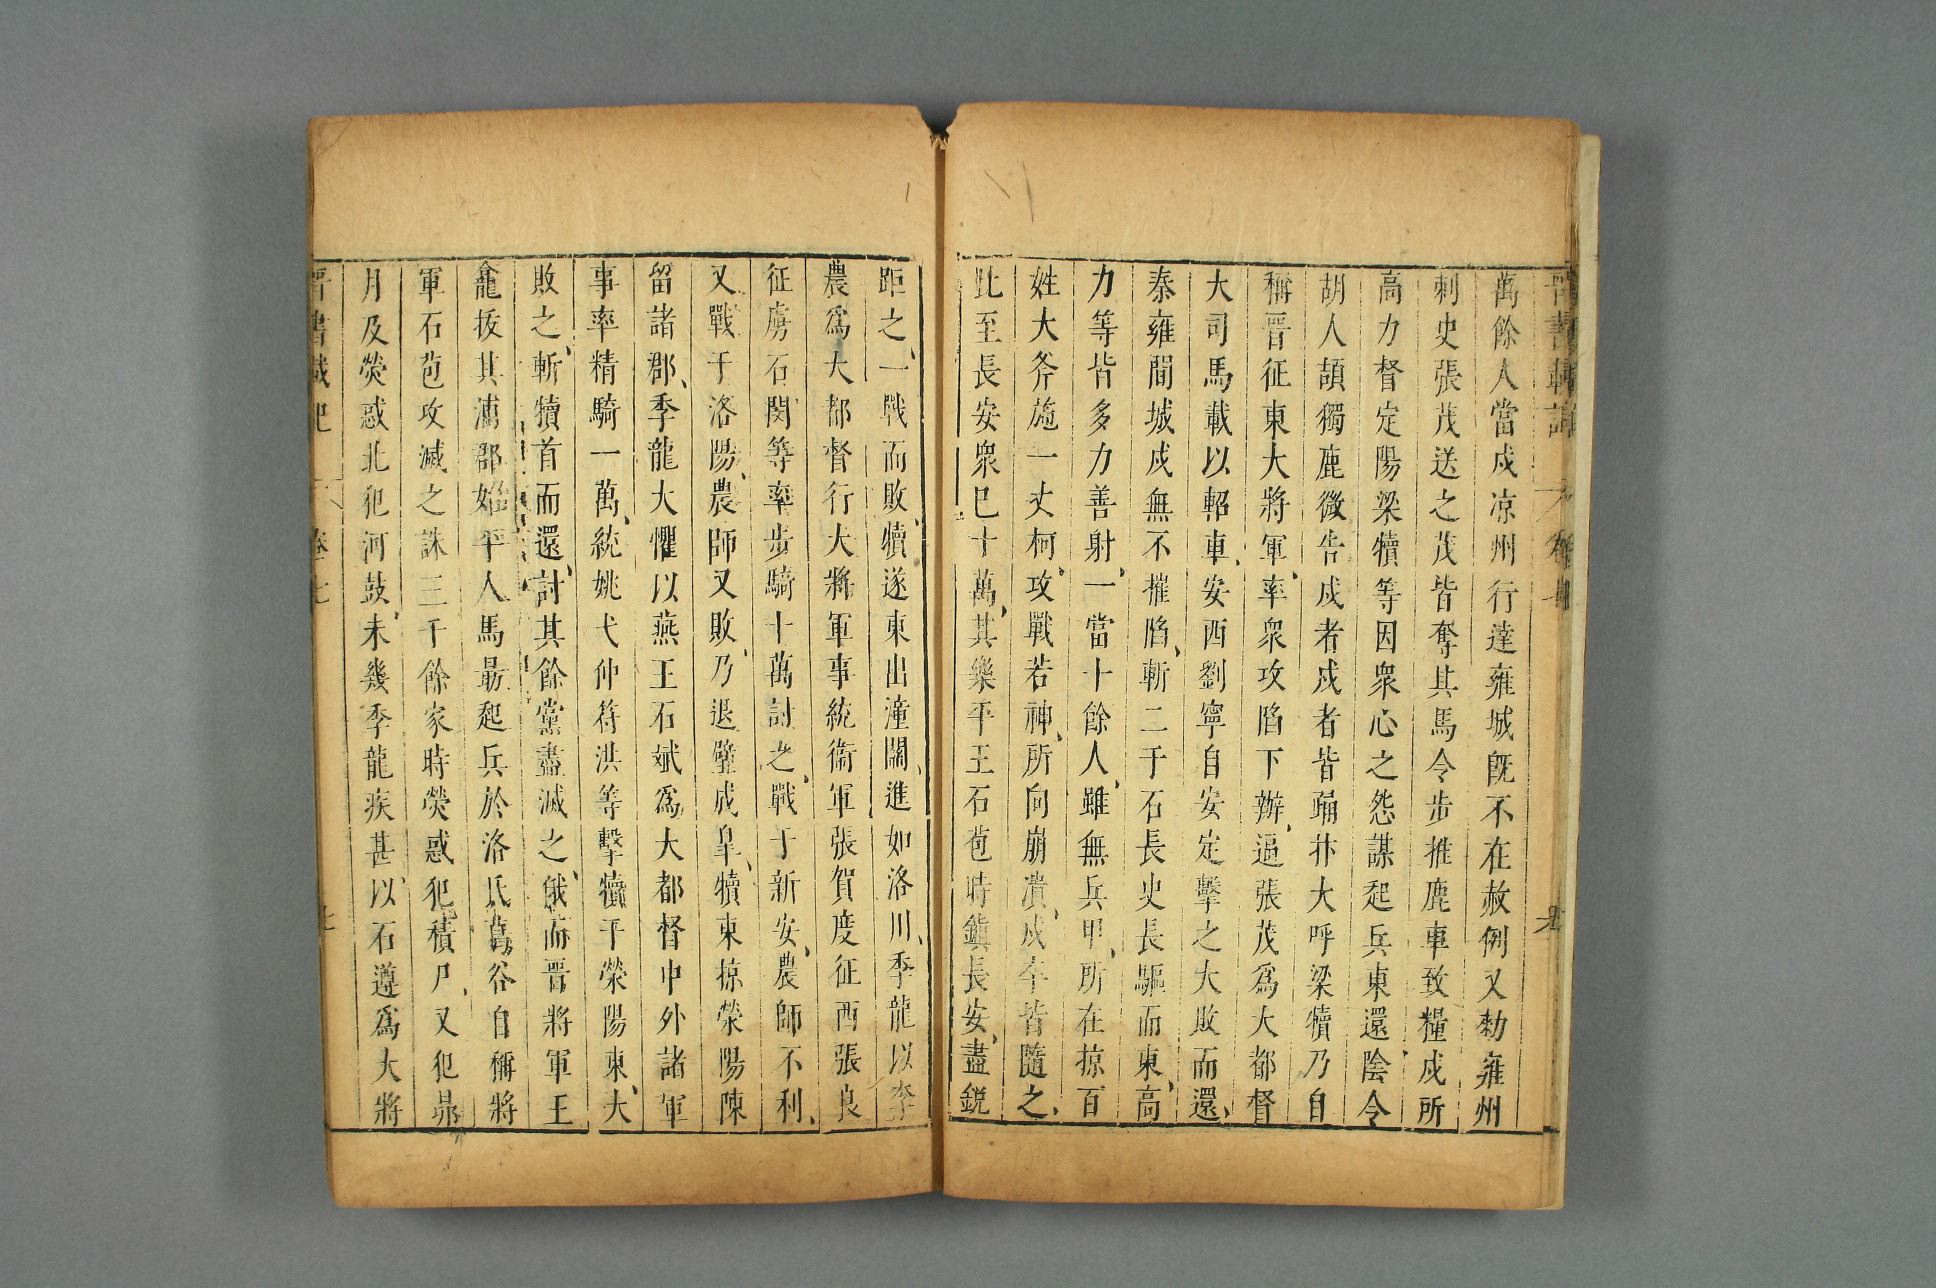 萬餘人當戍凉州行達雍城既不在赦例又勑雍州
刺史張茂送之茂皆奪其馬令步推鹿車致糧戍所
高力督定陽梁犢等因衆心之怨謀起兵東還陰令
胡人頡獨鹿微告戍者戍者皆踊抃大呼梁犢乃自
稱晉征東大將軍率衆攻陷下辦逼張茂爲大都督
大司馬載以軺車安西劉寧自安定擊之大敗而還
秦雍間城戍無不摧陷斬二千石長史長驅而東高
力等皆多力善射一當十餘人雖無兵甲所在掠百
姓大斧施一丈柯攻戰若神所向崩潰戍卒皆隨之
比至長安衆巳十萬其樂平王石苞時鎮長安盡銳
距之一戰而敗犢遂東出潼關進如洛川季龍以李
農爲大都督行大將軍事統衛軍張賀度征西張良
征虜石閔等率步騎十萬討之戰于新安農師不利
又戰于洛陽農師又敗乃退壁成臯犢東掠滎陽陳
留諸郡季龍大懼以燕王石斌爲大都督中外諸軍
事率精騎一萬統姚弋仲符洪等擊犢于滎陽東大
敗之斬犢首而還討其餘黨盡滅之俄而晉將軍王
龕拔其沛郡始平人馬最起兵於洛氏葛谷自稱將
軍石苞攻滅之誅三千餘家時熒惑犯積尸又犯昴
月及熒惑北犯河鼓未幾季龍疾甚以石遵爲大將
晉書載記 卷七